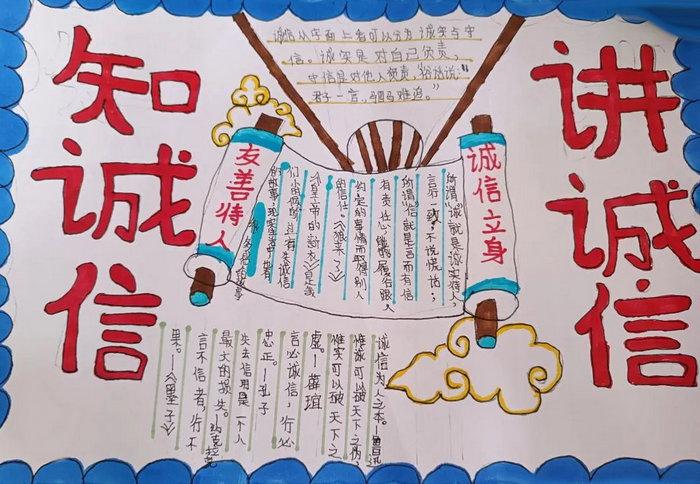 知诚信
讲诚信
诚信从字面上看可以分为诚实与守
信。诚实是对自己负责,
守信是对他人负责,俗话说:“
君子一言,驷马难追。”
诚信立身
友善待人
所谓“诚”就是诚实待人,
言行一致,不说谎话;
所谓“信”就是言而有信
有责任心能够履行跟
约定的事情而取得别人
的信任。《狼来了》
《皇帝的新衣》是我
们小时候的
的故事,现实生活中,也有
诚信为人之本。—鲁迅
惟诚可以破天下之伪,
惟实可以破天下之
虚。—薛瑄
言必诚信,行必
忠正。—孔子
失去信用是一个人
最大的损失。—约克拉克
言不信者,行不
果。—《墨子》